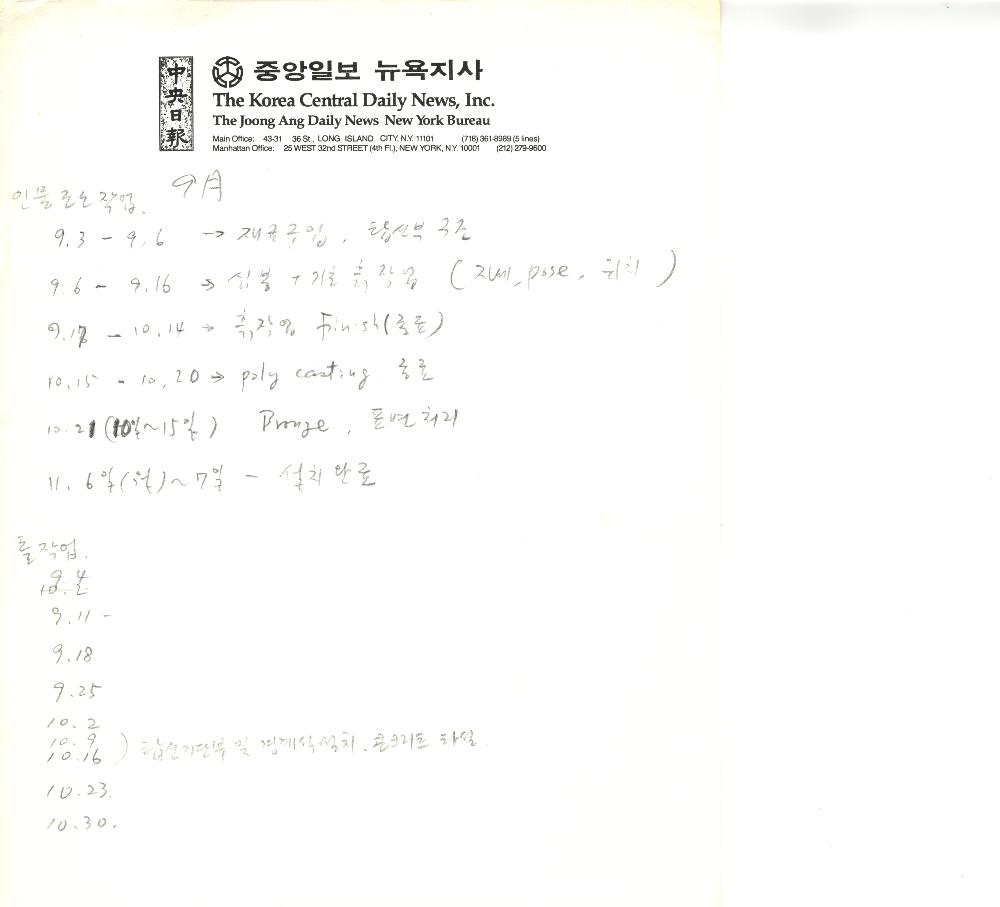 中央日報
중앙일보 뉴욕지사
The Korea Central Daily News, Inc.
The Joong Ang Daily News New York Bureau
Main Office: 43-31 36 St., LONG ISLAND CITY, N.Y. 11101 (718) 361-8989 (5 lines)
Manhattan Office: 25 WEST 32nd STREET (4th Fl.), NEW YORK, N.Y. 10001 (212) 279-9600
9月
인물 작업.
9.3 - 9.6 → 재료구입, 탑신부 구조
9.6 - 9.16 → 심봉 + 기초 흙작업 (자세, pose, 위치)
9.17 - 10.14 → 흙작업 Finish (종료)
10.15 - 10.20 → poly casting 종료
10.21 (10일~15일) Bronze, 표면처리
11. 6일(월)~7일 - 설치완료
돌작업.
9.4
10.2
9.11 -
9.18
9.25
10.2
10.9
10.16 ) 탑신기단부 및 경계석설치. 콘크리트 타설.
10.23.
10.30.